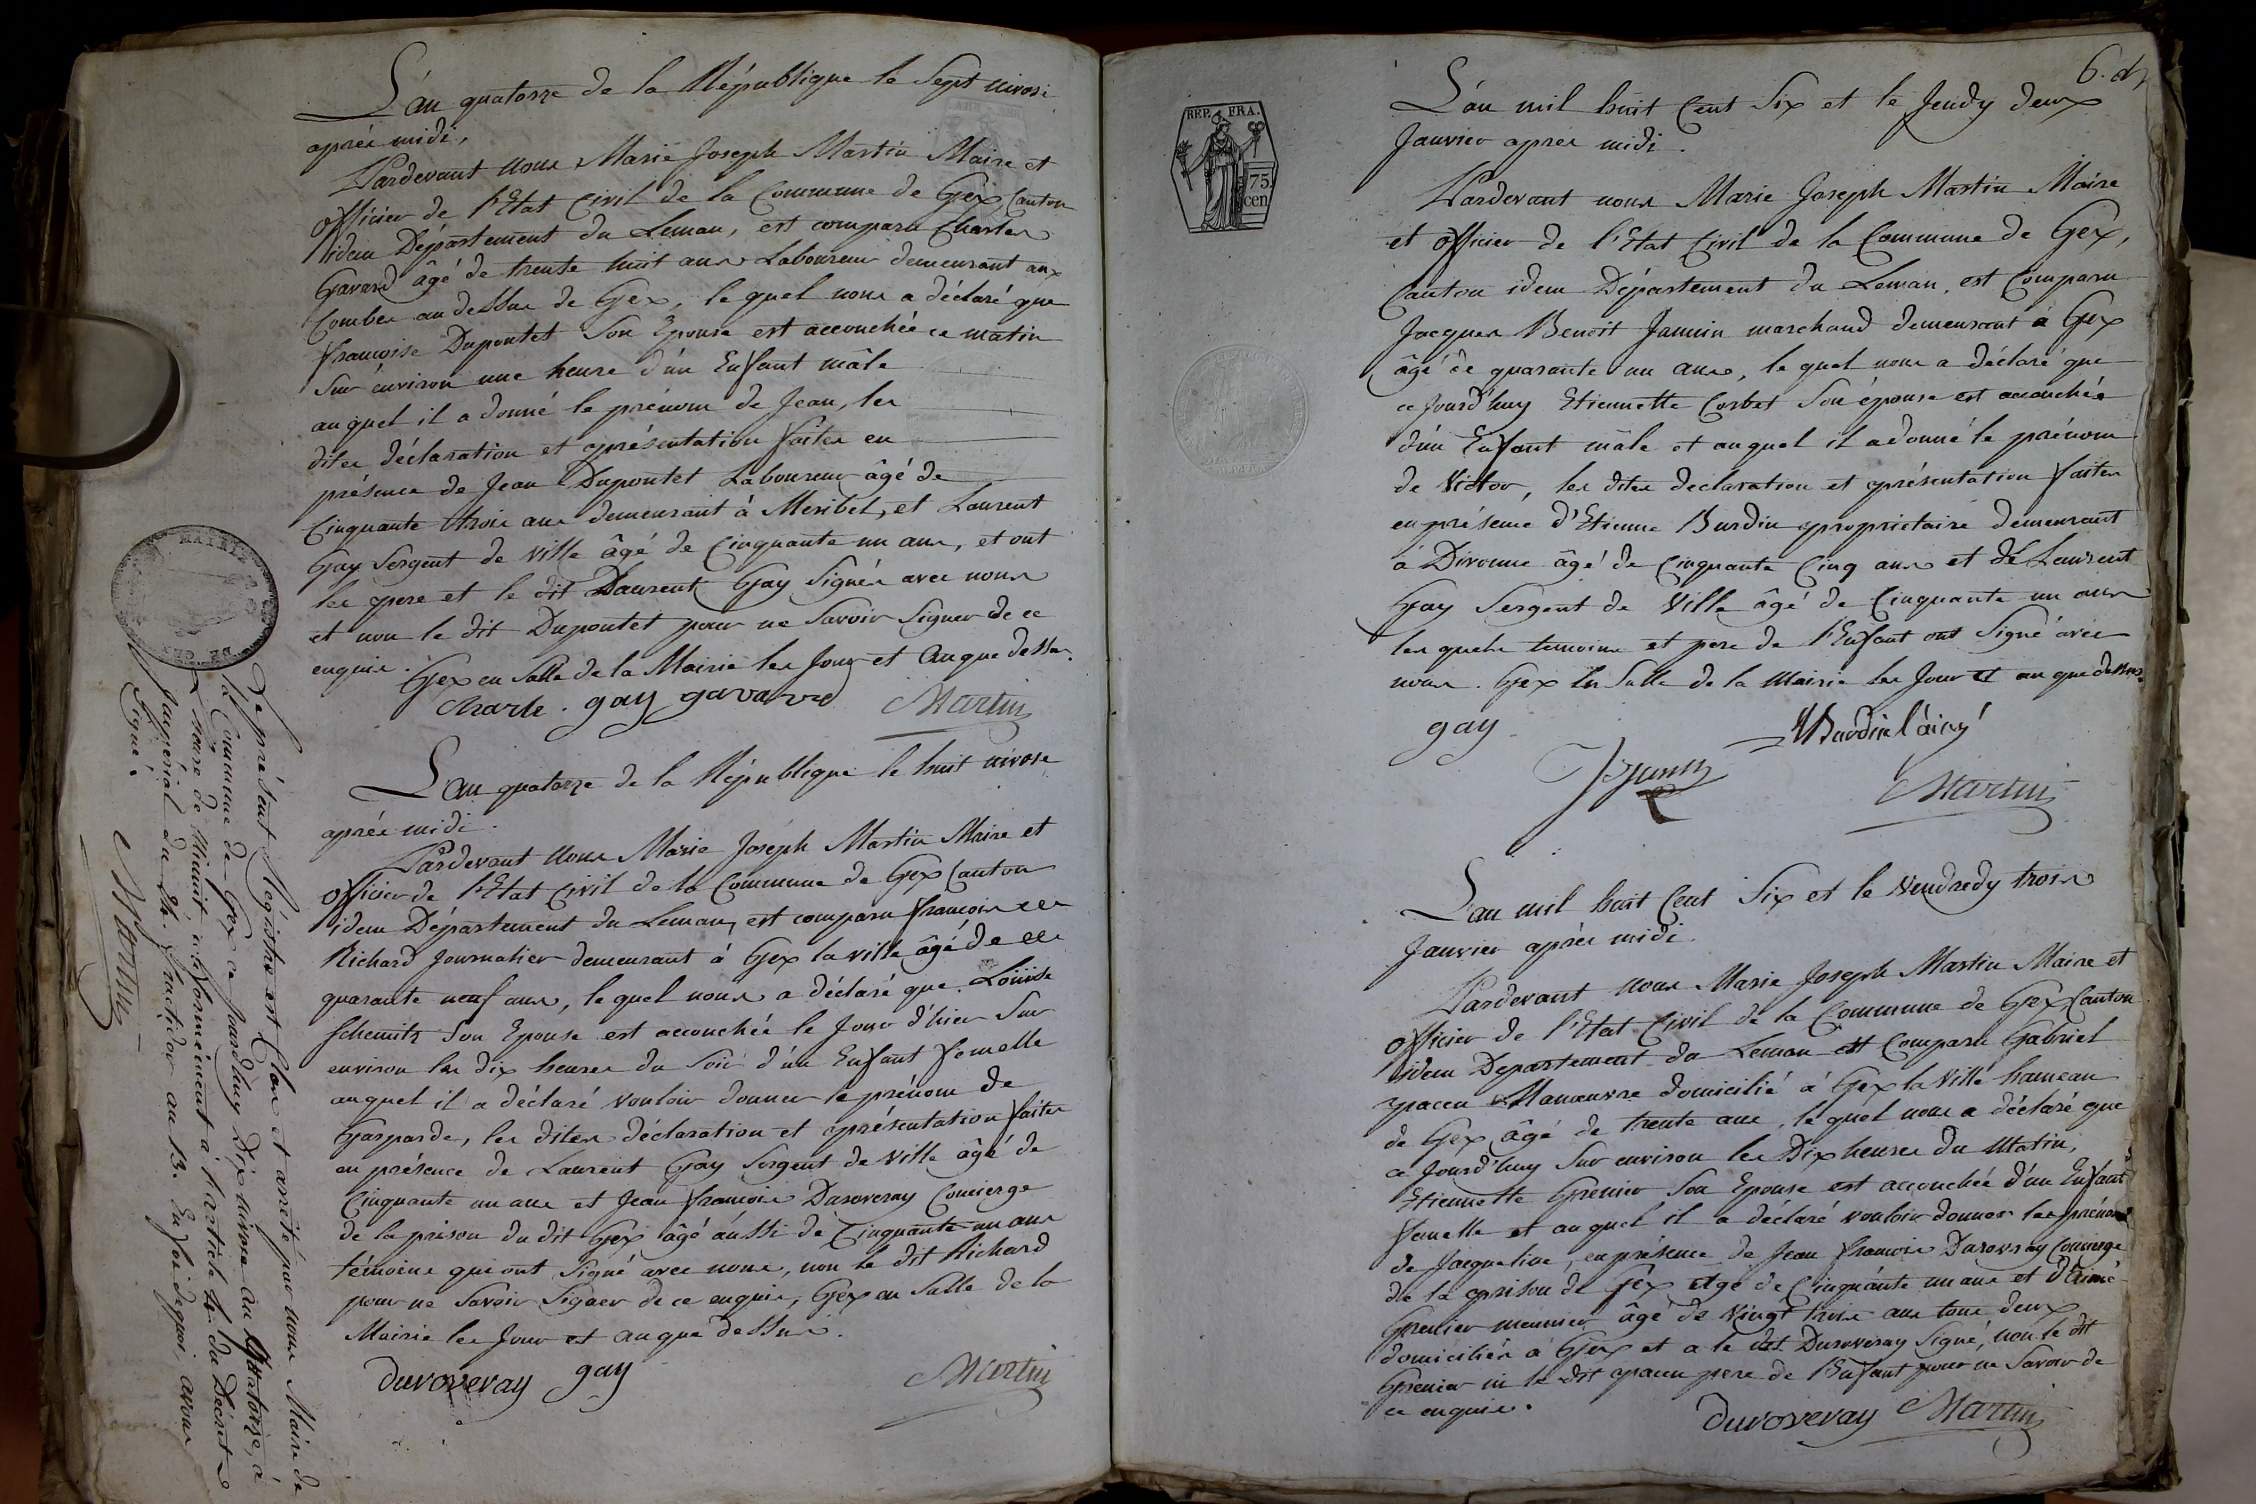 L'an quatorze de la République le Sept nivose
après midi,
Pardevant nous Marie Joseph Martin Maire et
officier de l'Etat Civil de la Commune de Gex, Canton
idem Département du Leman, est comparu Charles
Gavard âgé de trente huit ans Laboureur demeurant aux
Combes au dessus de Gex, le quel nous a déclaré que
françoise Dupontet Son Epouse est accouchée ce matin
Sur environ une heure d'un Enfant mâle
auquel il a donné le prénom de Jean, les
dites déclaration et présentation faites en
présence de Jean Dupontet Laboureur âgé de
Cinquante trois ans demeurant à Meribel, et Laurent
Gay Sergent de ville âgé de Cinquante un ans, et ont
les pere et le dit Laurent Gay Signés avec nous
et non le dit Dupontet pour ne Savoir Signer de ce
enquis. Gex en Salle de la Mairie les Jour et An que dessus.
Charle. gay gavard Martin
L'an quatorze de la République le huit nivose
après midi.
Pardevant nous Marie Joseph Martin Maire et
officier de l'Etat Civil de la Commune de Gex Canton
idem Département du Leman, est comparu françois
Richard Journalier demeurant à Gex la ville âgé de
quarante neuf ans, le quel nous a déclaré que Louise
Schemitz Son Epouse est accouchée le Jour d'hier Sur
environ les dix heures du Soir d'un Enfant femelle
auquel il a déclaré vouloir donner le prénom de
Gasparde, les dites déclaration et présentation faites
en présence de Laurent Gay Sergent de ville âgé de
Cinquante un ans et Jean françois Duroveray Concierge
de la prison du dit Gex âgé aussi de Cinquante un ans
témoins qui ont Signé avec nous, non le dit Richard
pour ne Savoir Signer de ce enquis, Gex en Salle de la
Mairie les Jour et an que dessus.
duroveray gay Martin
MAIRIE DE GEX
Le présent Régistre est Clos et arrêté par nous Maire de
la Commune de Gex ce Jourd'huy Dix nivose an Quatorze, à
l'heure de Minuit, conformément à l'article du Décret
Impérial du fructidor an 13. En foi de quoi, avons
Signé.
Martin
6.
REP. FRA.
75
cen
L'an mil huit Cent Six et le Jeudy deux
Janvier après midi.
Pardevant nous Marie Joseph Martin Maire
et officier de l'Etat Civil de la Commune de Gex,
Canton idem Département du Leman, est Comparu
Jacques Benoit Jamin marchand demeurant à Gex
âgé de quarante un ans, le quel nous a déclaré que
ce Jourd'huy Etiennette Corbet Son épouse est accouchée
d'un Enfant mâle et auquel il a donné le prénom
de Victor, les dites declaration et présentation faites
en présence d'Etienne Burdin propriétaire demeurant
à Divonne âgé de Cinquante Cinq ans et de Laurent
Gay Sergent de Ville âgé de Cinquante un ans
les quels temoins et pere de l'Enfant ont Signé avec
nous. Gex En Salle de la Mairie les Jour et an que dessus.
gay Burdin l'ainé
Martin
L'an mil huit Cent Six et le Vendredy trois
Janvier après midi.
Pardevant nous Marie Joseph Martin Maire et
officier de l'Etat Civil de la Commune de Gex Canton
idem Departement du Leman est Comparu Gabriel
pacou Manoeuvre domicilié à Gex la Ville hameau
de Gex âgé de trente ans, le quel nous a déclaré que
ce Jourd'huy Sur environ les Dix heures du Matin,
Etiennette Grenier Son Epouse est accouchée d'un Enfant
femelle et auquel il a déclaré vouloir donner les prénoms
de Jacqueline, en présence de Jean françois Duroveray Concierge
de la prison de Gex agé de Cinquante un ans et d'Aimé
Grenier meunier âgé de Vingt trois ans tous deux
domiciliés à Gex et a le dit Duroveray Signé, non le dit
Grenier ni le dit pacou pere de l'Enfant pour ne Savoir de
ce enquis.
duroveray Martin